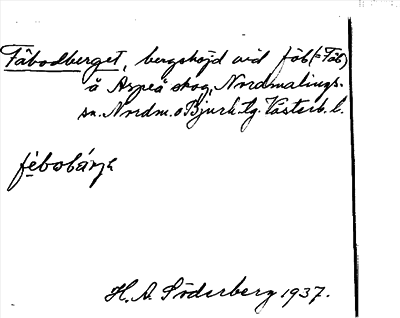 Fäbodberget, bergshöjd vid fäb (= Fäb)
å Aspeå skog, Nordmalings-
sn. Nordm. o Bjurh. tg. Västerb. l.
fébobárje
H. A. Söderberg 1937.